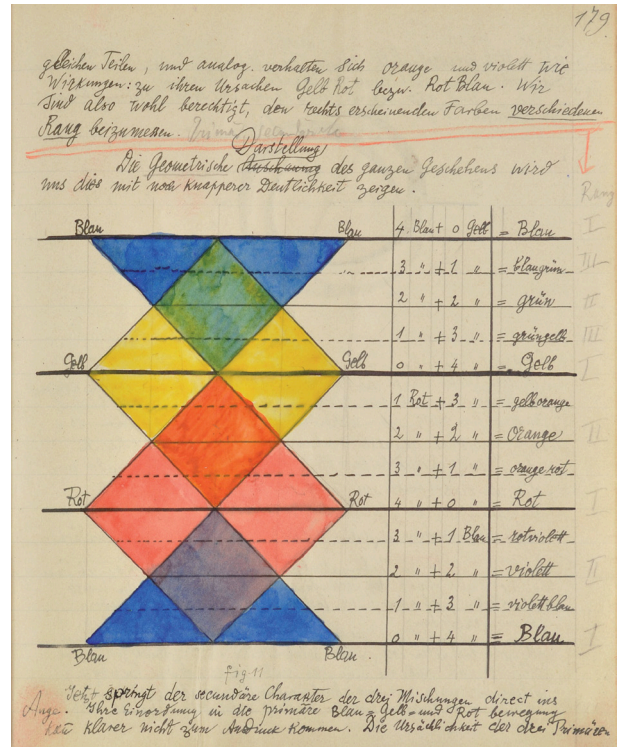 179
gleichen Teilen, und analog. verhalten sich orange und violett wie
Wirkungen: zu ihren Ursachen Gelb Rot bezw. Rot Blau. Wir
sind also wohl berechtigt, den rechts erscheinenden Farben verschiedenen
Rang beizumessen.
Darstellung
Die Geometrische Anschauung des ganzen Geschehens wird
uns dies mit noch knapperer Deutlichkeit zeigen.
Rang
Blau Blau 4 Blau + 0 Gelb = Blau I
3 " + 1 " = blaugrün III
2 " + 2 " = grün II
1 " + 3 " = grüngelb III
Gelb Gelb 0 " + 4 " = Gelb I
1 Rot + 3 " = gelborange
2 " + 2 " = Orange II
3 " + 1 " = orangerot
Rot Rot 4 " + 0 " = Rot I
3 " + 1 Blau = rotviolett
2 " + 2 " = violett II
1 " + 3 " = violettblau
0 " + 4 " = Blau I
Blau Blau.
fig 11
Jetzt springt der secundäre Charakter der drei Mischungen direct ins
Auge. Ihre Einordnung in die primäre Blau- Gelb- und Rot bewegung
kann klarer nicht zum Ausdruck kommen. Die Ursächlichkeit der drei Primären